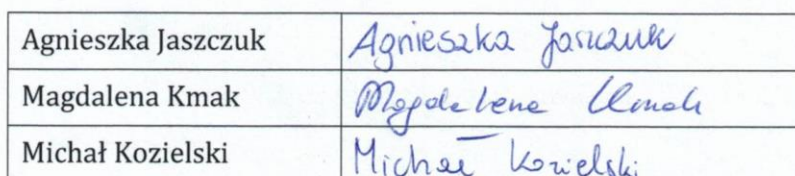 Agnieszka Jaszczuk Agnieszka Jaszczuk
Magdalena Kmak Magdalena Kmak
Michał Kozielski Michał Kozielski